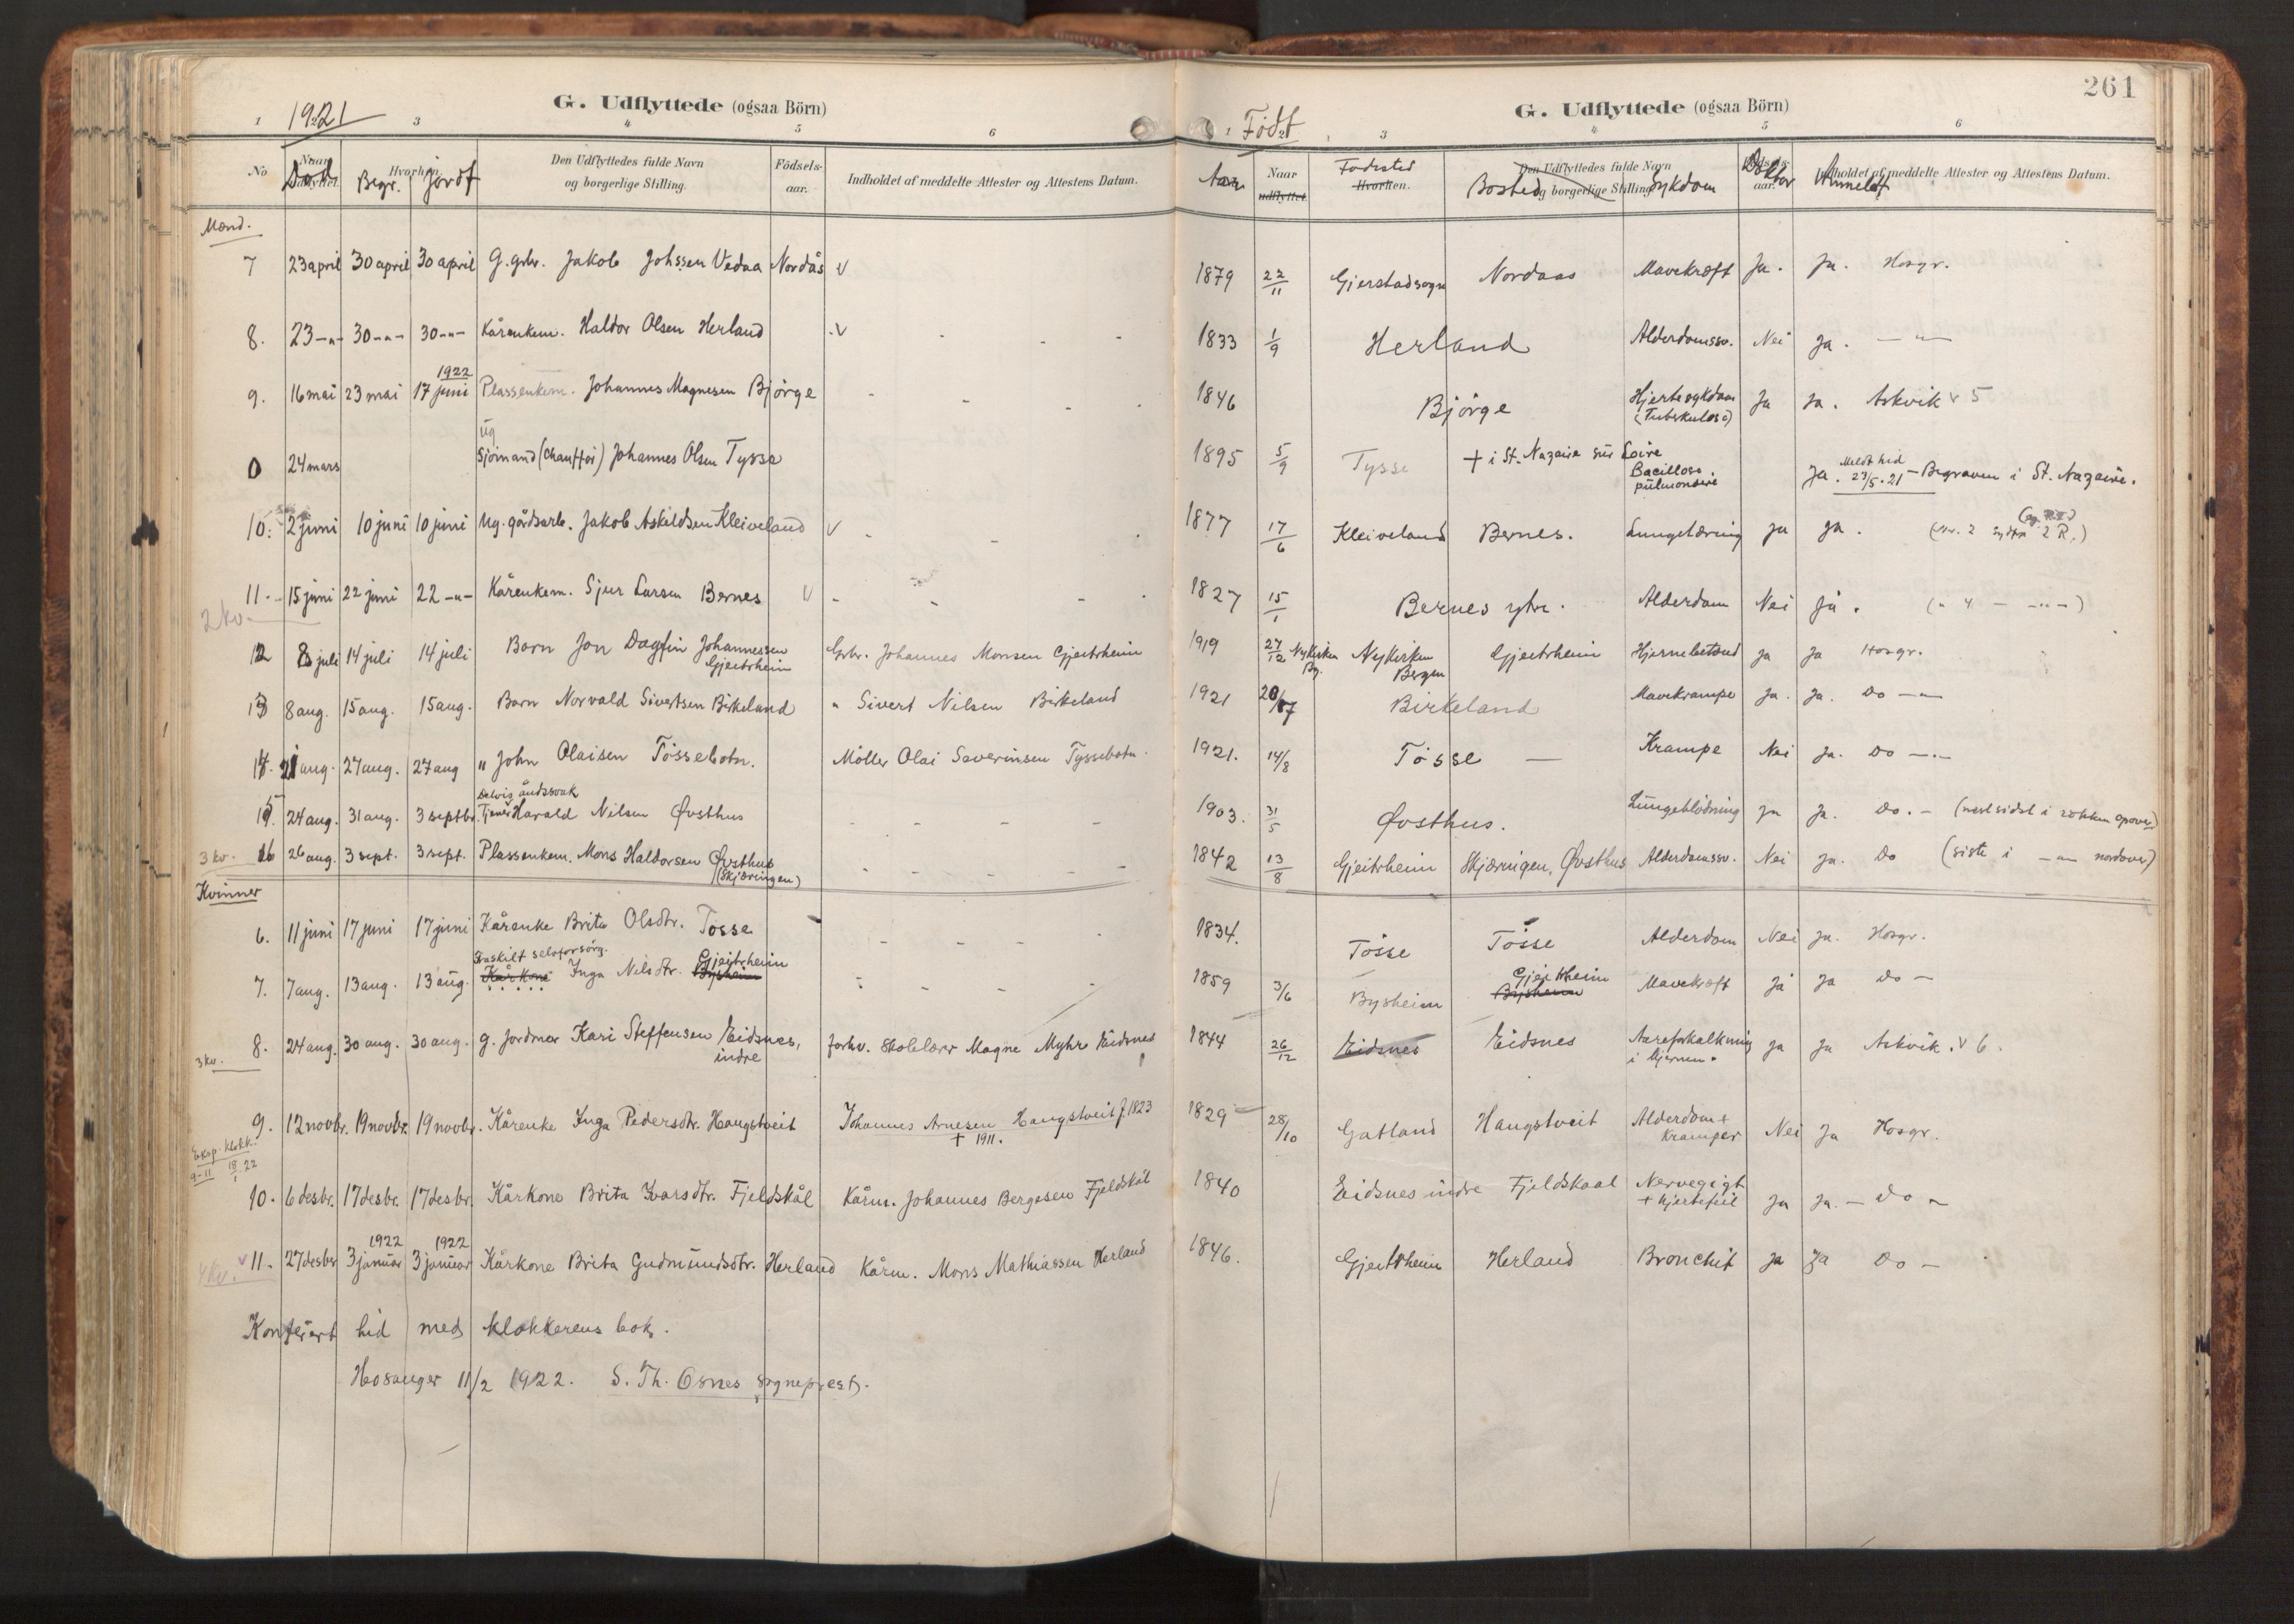 261
1921
G. Udflyttede (ogsaa Börn)
Födt
G. Udflyttede (ogsaa Börn)
1 3 4 5 6 1 3 4 5 6
No Naar Död Hvorhen. Begr. jordf Den Udflyttedes fulde Navn og borgerlige Stilling. Födsels-aar. Indholdet af meddelte Attester og Attestens Datum.
Aar Naar udflyttet Födested Hvorhen. Bosted Den Udflyttedes fulde Navn og borgerlige Stilling Sykdom Doktor aar. Anmeldt Indholdet af meddelte Attester og Attestens Datum.
Mænd.
7 23 april 30 april 30 april G.grbr. Jakob Johssen Vedaa Nordås v 1879 22/11 Gjerstadsogn Nordaas Mavekræft Ja. Ja. Hosgr.
8. 23 -"- 30 -"- 30 -"- Kårenkem. Haldor Olsen Herland v 1833 1/9 Herland Alderdomssv. Nei Ja. -"-
9. 16 mai 23 mai 1922 17 juni Plassenkem. Johannes Magnesen Björge 1846 Björge Hjertesykdom (Tuberkulose) Ja Ja. Askvik v 5
0 24 mars ug Sjömand (chaufför) Johannes Olsen Tysse 1895 5/9 Tysse + i St. Nazaire sur Loire Bacillose pulmonaire Ja. Meldt hid 23/5.21 - Begraven i St. Nazaire.
10. 2 juni 10 juni 10 juni Ug. gårdsarb. Jakob Askildsen Kleiveland v 1877 17/6 Kleiveland Bernes. Lungetæring Ja Ja. (nr. 2 2 R.)
11. 15 juni 22 juni 22 -"- Kårenkem. Sjur Larsen Bernes v 1827 15/1 Bernes ytre. Alderdom Nei Ja. (" 4 - -"-)
2 kv.
12 8 juli 14 juli 14 juli Barn Jon Dagfin Johannessen Gjeitrheim Grbr. Johannes Monsen Gjeitrheim 1919 27/12 Nykirken By. Nykirken Bergen Gjeitrheim Hjernebetend Ja Ja Hosgr.
13 8 aug. 15 aug. 15 aug. Barn Norvald Sivertsen Birkeland " Sivert Nilsen Birkeland 1921 20/7 Birkeland Mavekrampe Ja. Ja. Do -"-
14. 21 aug. 27 aug. 27 aug " John Olaisen Tössebotn. Möller Olai Severinsen Tyssebotn 1921. 14/8 Tösse — Krampe Nei Ja. Do -"-
15. 24 aug. 31 aug. 3 septbr. Delvis åndssvak Tjener Harald Nilsen Øvsthus 1903. 31/5 Øvsthus. Lungeblödning Ja Ja. Do. - (nestsidst i rökken opover)
3 kv. 16 26 aug. 3 sept. 3 sept. Plassenkem. Mons Haldorsen Øvsthus (Skjæringen) 1842 13/8 Gjeitrheim Skjæringen, Øvsthus Alderdomssv. Nei Ja. Do (siste i -"- nordover)
Kvinner
6. 11 juni 17 juni 17 juni Kårenke Brita Olsdtr. Tösse 1834. Tösse Tösse Alderdom Nei Ja. Hosgr.
7. 7 aug. 13 aug. 13 aug. Fraskilt selvforsörg. Kårkone Inga Nilsdtr. Gjeitrheim Bysheim 1859 3/6 Bysheim Gjeitrheim Bysheim Mavekræft Ja Ja Do -
3 kv. 8. 24 aug. 30 aug. 30 aug. g. jordmor Kari Steffensen Eidsnes, indre forhv. Skolelærer Magne Myhre Eidsnes 1844 26/12 Eidsnes Eidsnes Aareforkalkning i hjernen. Ja Ja Askvik. v 6.
9. 12 novbr. 19 novbr. 19 novbr. Kårenke Inga Pedersdtr. Haugstveit Johannes Arnesen Haugstveit f. 1823 + 1911. 1829 28/10 Gatland Haugstveit Alderdom + Kramper Nei Ja Hosgr.
Eksp. klokk. 9-11 18/1 22
10. 6 desbr. 17 desbr. 17 desbr. Kårkone Brita Ivarsdtr. Fjeldskål Kårm. Johannes Bergesen Fjeldskål 1840 Eidsnes indre Fjeldskaal Nervegigt + hjertefeil Ja Ja. - Do -
4 kv. v 11. 27 desbr 1922 3 januar 1922 3 januar Kårkone Brita Gudmundsdtr. Herland Kårm. Mons Mathiassen Herland 1846. Gjeitrheim Herland Bronchit Ja Ja Do -
Konferert hid med klokkerens bok.
Hosanger 11/2 1922. S. Th. Osnes sogneprest.